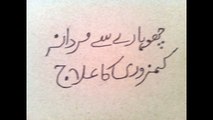 چھوہارے سے مردانہ
کمزوری کا علاج